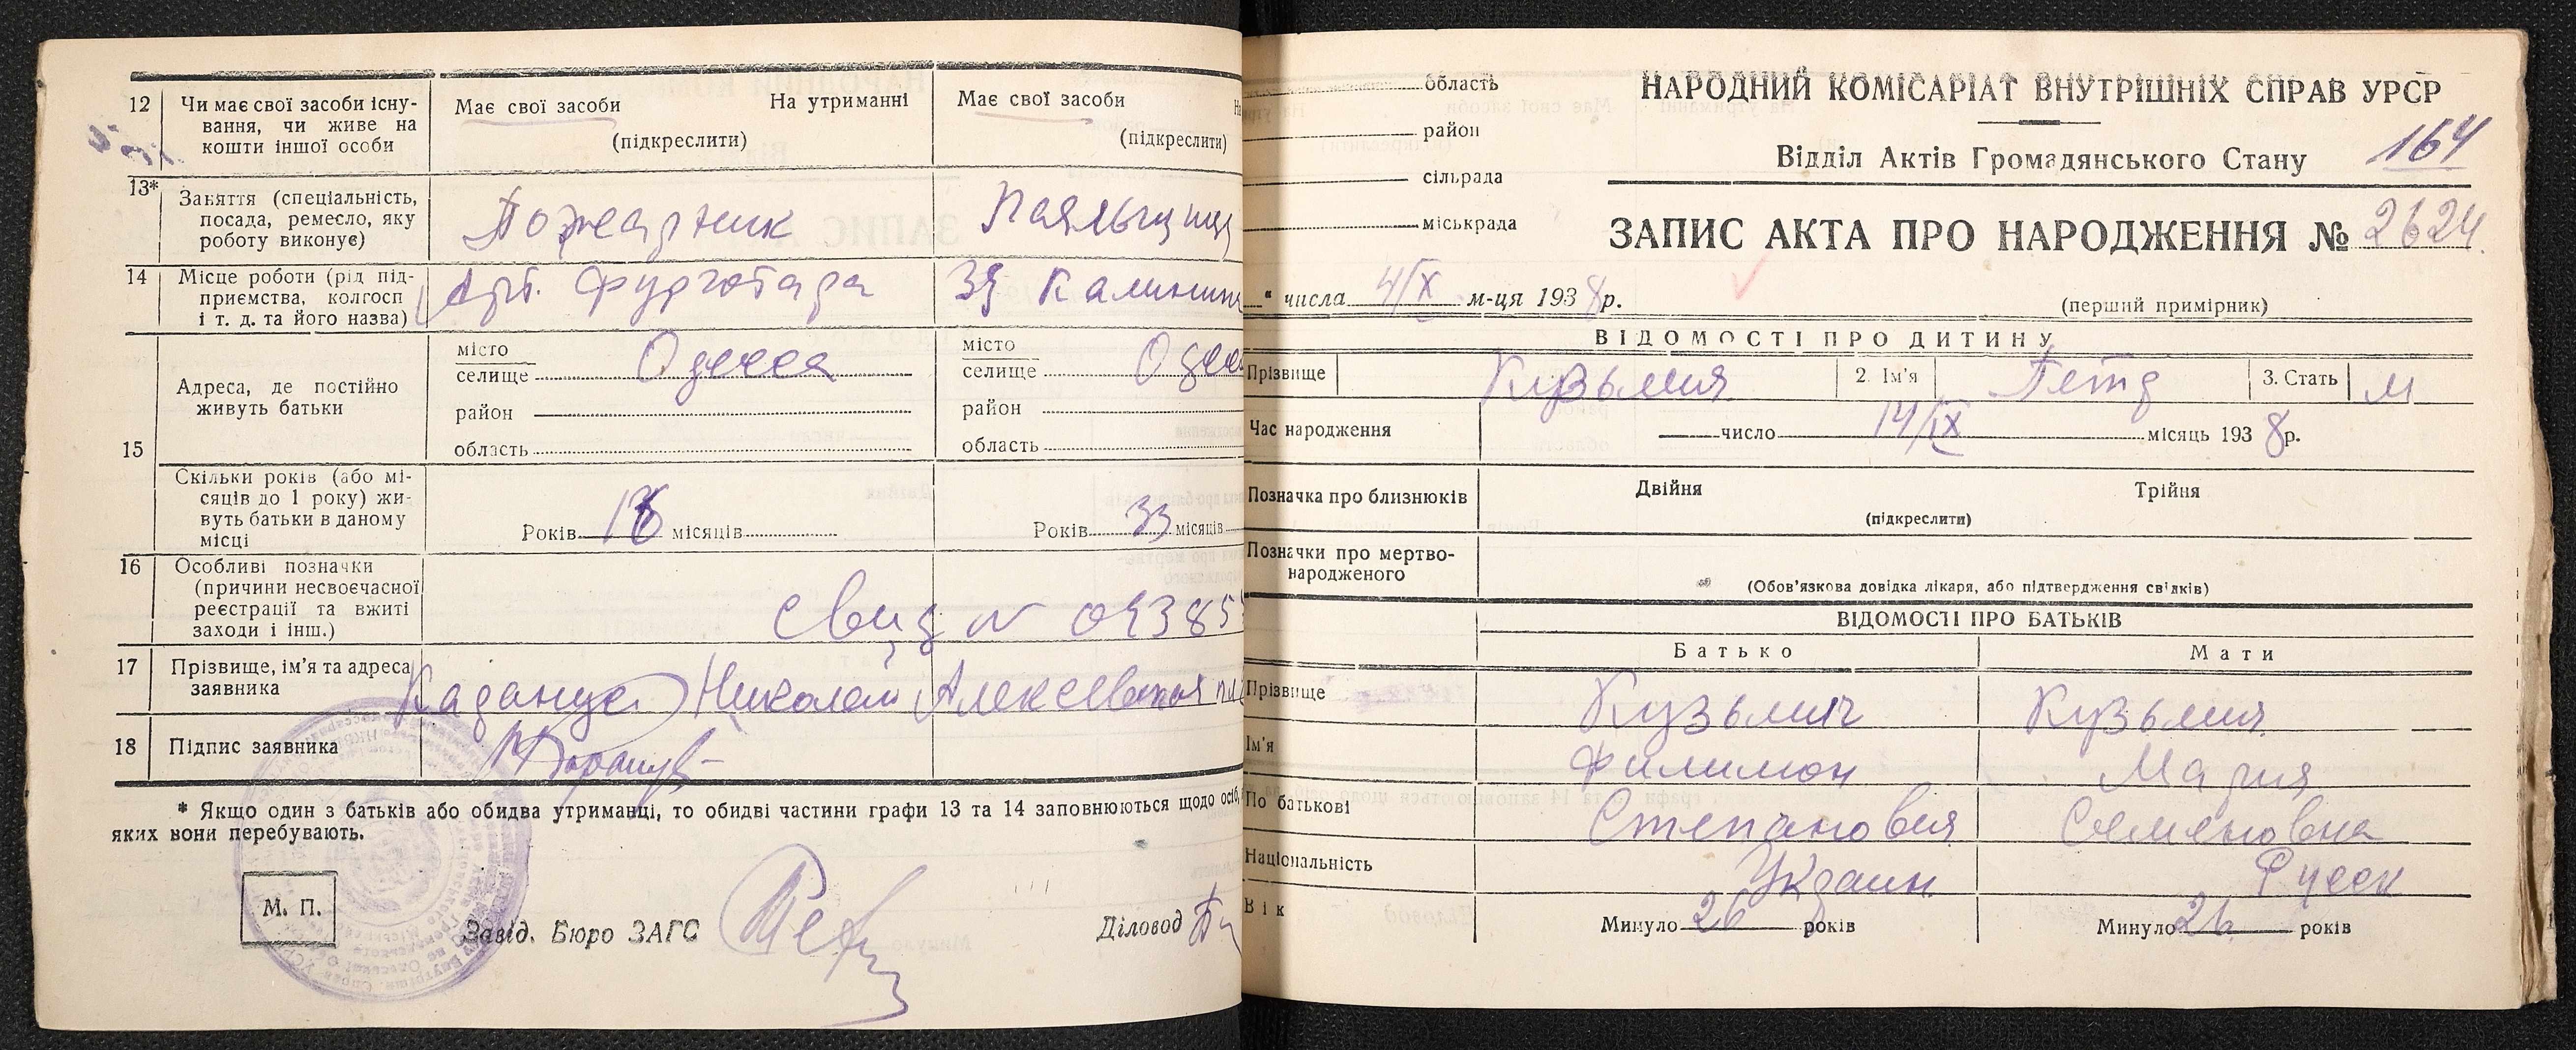 12 Чи має свої засоби існу-
вання, чи живе на
кошти іншої особи
Має свої засоби На утриманні
(підкреслити)
Має свої засоби
(підкреслити)
13* Заняття (спеціальність,
посада, ремесло, яку
роботу виконує)
Пожарник
14 Місце роботи (рід під-
приємства, колгосп
і т. д. та його назва)
Арт. Фурготара
15 Адреса, де постійно
живуть батьки
місто
селище Одесса
район
область
місто
селище
район
область
Скільки років (або мі-
сяців до 1 року) жи-
вуть батьки в даному
місці
Років місяців
Років 33 місяців
16 Особливі позначки
(причини несвоєчасної
реєстрації та вжиті
заходи і інш.)
Свид N
17 Прізвище, ім'я та адреса
заявника
Николай
18 Підпис заявника
* Якщо один з батьків або обидва утриманці, то обидві частини графи 13 та 14 заповнюються щодо осіб,
яких вони перебувають.
М. П.
Завід. Бюро ЗАГС
Діловод
область
район
сільрада
міськрада
НАРОДНИЙ КОМІСАРІАТ ВНУТРІШНІХ СПРАВ УРСР
Відділ Актів Громадянського Стану
164
ЗАПИС АКТА ПРО НАРОДЖЕННЯ № 2624
" числа 4/X м-ця 1938 р.
(перший примірник)
ВІДОМОСТІ ПРО ДИТИНУ
Прізвище Кузьмич 2. Ім'я Петр 3. Стать м
Час народження число 14/IX місяць 1938 р.
Позначка про близнюків Двійня Трійня
(підкреслити)
Позначки про мертво-
народженого
(Обов'язкова довідка лікаря, або підтвердження свідків)
ВІДОМОСТІ ПРО БАТЬКІВ
Батько Мати
Прізвище Кузьмич Кузьмич
Ім'я Филимон Мария
По батькові Степанович Семеновна
Національність Украин Русск
Вік Минуло 26 років Минуло 26 років